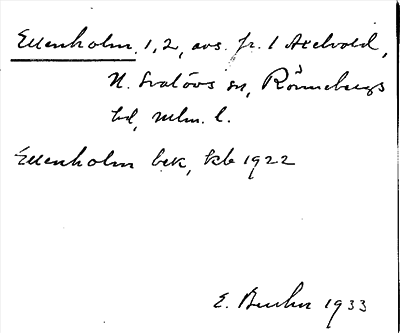 Ellenholm, 1, 2, avs. fr. 1 Axelvold,
N. Svalövs sn, Rönnebergs
hd, Mlm. l.
Ellenholm bek, kb 1922
E. 1933